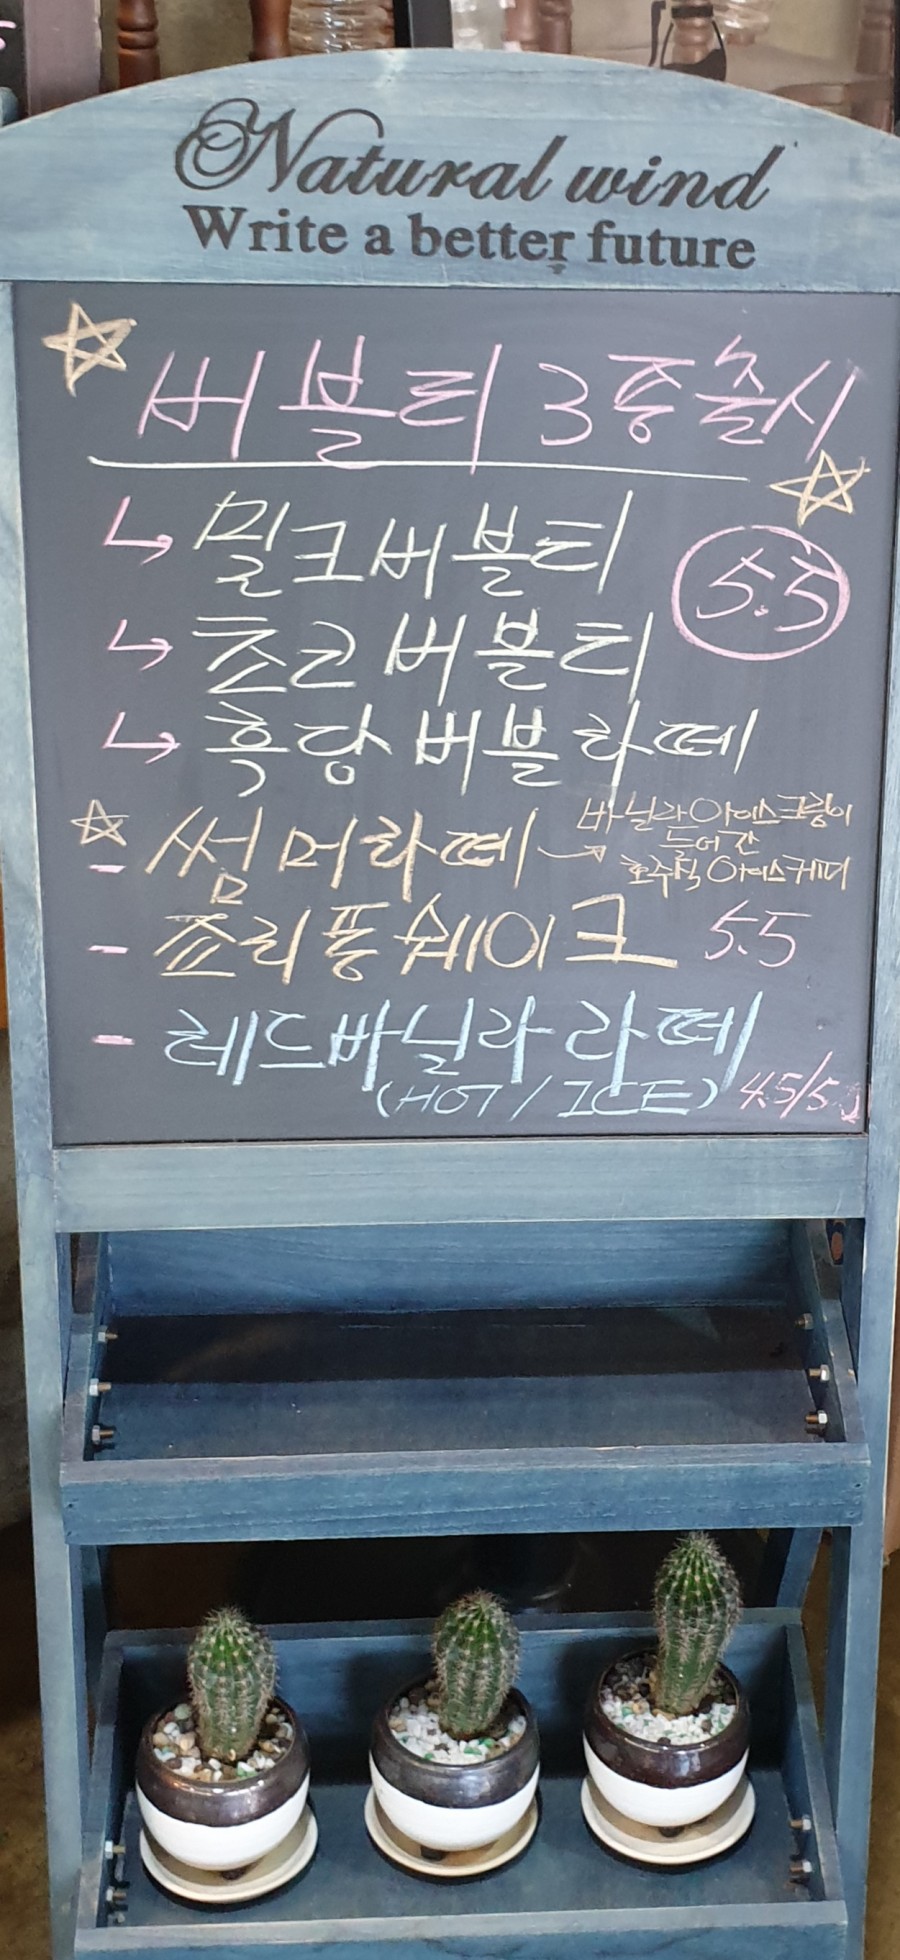 Natural wind
Write a better future
버블티 3종 출시
밀크버블티
5.5
초코버블티
흑당 버블라떼
썸머라떼 → 바닐라아이스크림이
들어간
호주식 아이스커피
쵸리퐁 쉐이크 5.5
레드바닐라 라떼
(HOT / ICE) 4.5/5.